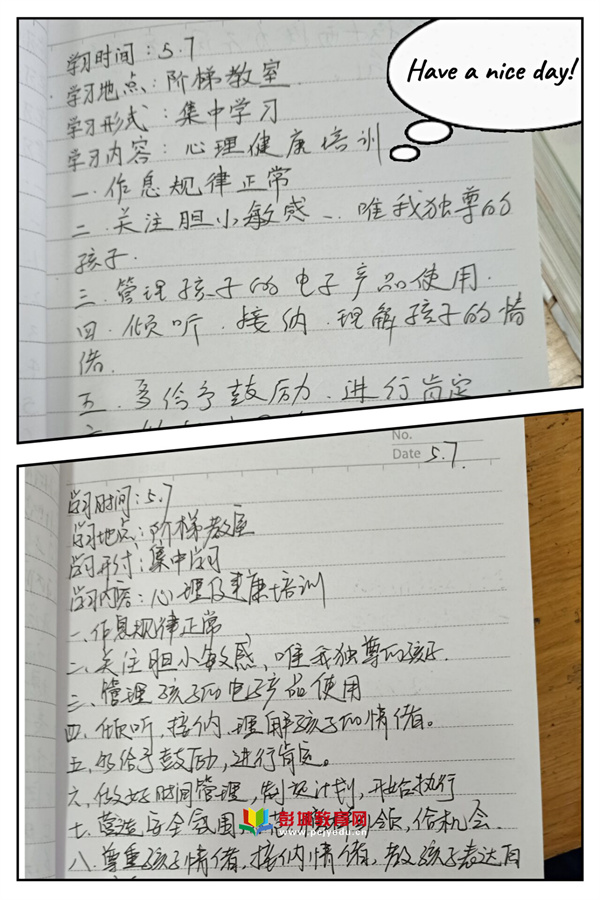 学习时间：5.7
Have a nice day!
学习地点：阶梯教室
学习形式：集中学习
学习内容：心理健康培训
一.作息规律正常
二.关注胆小敏感、唯我独尊的
孩子.
三.管理孩子的电子产品使用.
四.倾听.接纳.理解孩子的情
绪.
五.多给予鼓励.进行肯定.
No.
Date 5.7.
学习时间：5.7
学习地点：阶梯教室
学习形式：集中学习
学习内容：心理健康培训
一、作息规律正常
二、关注胆小敏感、唯我独尊的孩子.
三、管理孩子的电子产品使用
四、倾听,接纳,理解孩子的情绪。
五、多给予鼓励,进行肯定。
六、做好时间管理,制定计划,开始执行
七、营造安全氛围,给机会.
彭城教育网
www.pcjyedu.cn
八、尊重孩子情绪,接纳情绪,教孩子表达自